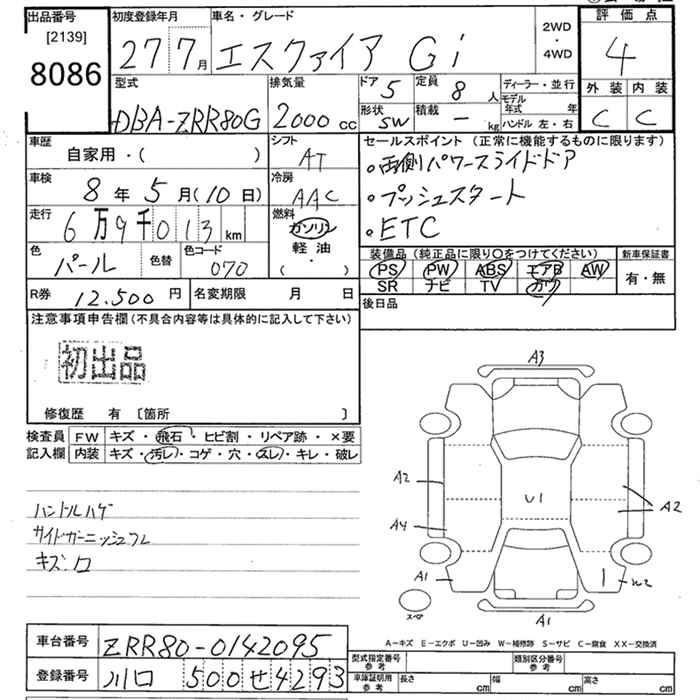 出品番号
[2139]
8086
初度登録年月
27 7月
車名・グレード
エスクァイア Gi
2WD
・
4WD
評価点
4
外装 内装
C C
型式
DBA-ZRR80G
排気量
2000 cc
ドア 5
定員 8 人
形状 SW
積載 - kg
ディーラー・並行
モデル年式 年
ハンドル 左・右
車歴
自家用・( )
シフト
AT
車検
8年 5月(10日)
冷房
AAC
走行
6万9千013 km
燃料
ガソリン
軽油
・( )
色
パール
色替
色コード
070
R券 12.500円
名変期限 月 日
セールスポイント(正常に機能するものに限ります)
・両側パワースライドドア
・プッシュスタート
・ETC
装備品(純正品に限り○をつけてください)
PS PW ABS エアB AW
SR ナビ TV カワ
新車保証書
有・無
後日品
注意事項申告欄(不具合内容等は具体的に記入して下さい)
初出品
修復歴 有 [箇所 ]
検査員記入欄
FW キズ・飛石・ヒビ割・リペア跡・×要
内装 キズ・汚レ・コゲ・穴・スレ・キレ・破レ
ハンドルハゲ
サイドガーニッシュフレ
キズ・ワ
A3
A2
U1
A2
A4
A1
W2
スペア
A1
A-キズ E-エクボ U-凹み W-補修跡 S-サビ C-腐食 XX-交換済
車台番号 ZRR80-0142095
登録番号 川口 500 せ 4293
型式指定番号参考
類別区分番号参考
車庫証明用参考 長さ cm 幅 cm 高さ cm